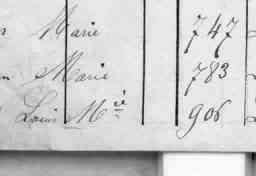 Marie 747
Marie 783
Louis M.ié 906